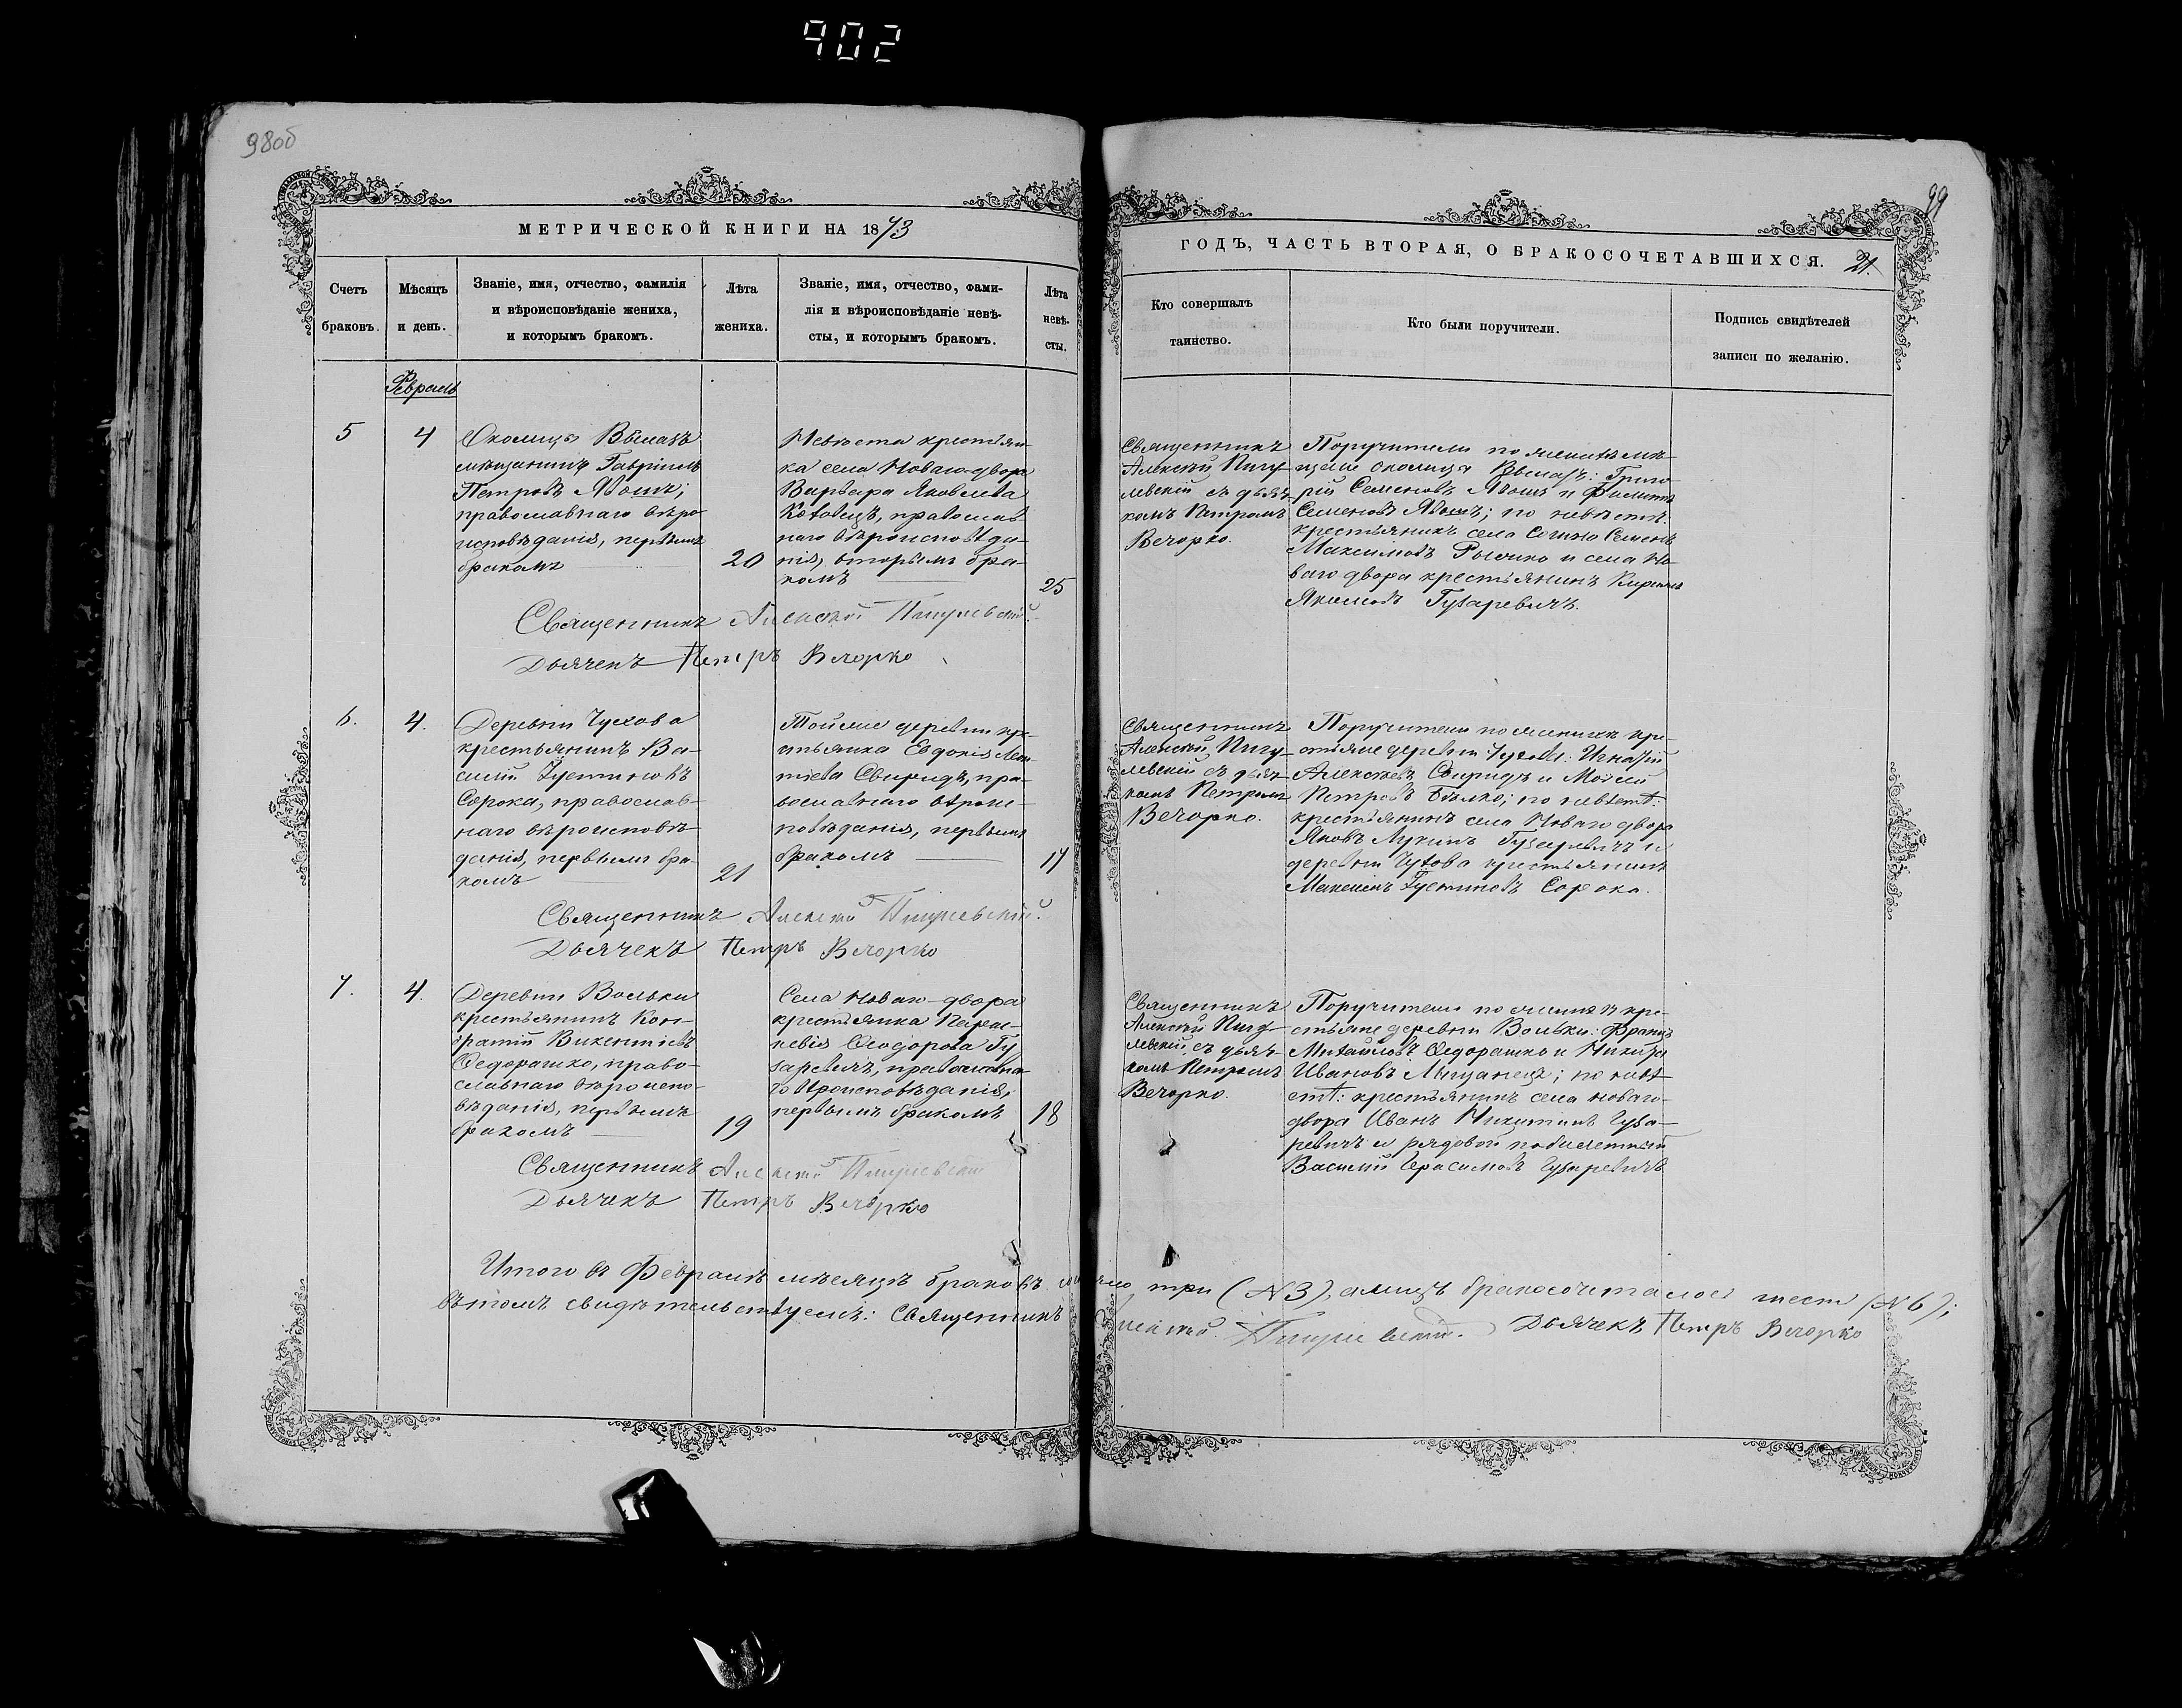 902
98об
99
МЕТРИЧЕСКОЙ КНИГИ НА 1873
ГОДЪ, ЧАСТЬ ВТОРАЯ, О БРАКОСОЧЕТАВШИХСЯ.
21.
Счетъ
браковъ.
Мѣсяцъ
и день.
Званіе, имя, отчество, фамилія
и вѣроисповѣданіе жениха,
и которымъ бракомъ.
Лѣта
жениха.
Званіе, имя, отчество, фами-
лія и вѣроисповѣданіе невѣ-
сты, и которымъ бракомъ.
Лѣта
невѣ-
сты.
Кто совершалъ
таинство.
Кто были поручители.
Подпись свидѣтелей
записи по желанію.
Февраль
5
4
Околица
мѣщанинъ Гавріилъ
Петровъ
православнаго вѣро-
исповѣданія, первымъ
бракомъ
20
Невѣста крестьян-
ка села Новаго-двора
Варвара Яковлева
православ-
наго вѣроисповѣда-
нія, вторымъ бра-
комъ
25
Священникъ
Алексѣй Пигу-
левскій съ дьяч-
комъ Петромъ
Вечорко.
Поручители по
Околицы Григо-
рій Семеновъ и Филиппъ
Семеновъ по невѣстѣ:
крестьянинъ села Семенъ
Максимовъ и села Но-
ваго двора крестьянинъ
Якимовъ Гузаревичъ.
Священникъ Алексѣй Пигулевскій.
Дьячекъ Петръ Вечорко
6.
4.
Деревни Чухова
крестьянинъ Ва-
силій Іустиновъ
Сорока, православ-
наго вѣроисповѣ-
данія, первымъ бра-
комъ
21
Тойже деревни кре-
стьянка Евдокія
Свиридъ, пра-
вославнаго вѣроис-
повѣданія, первымъ
бракомъ
17
Священникъ
Алексѣй Пигу-
левскій съ дьяч-
комъ Петромъ
Вечорко.
Поручители по женихѣ кре-
стьяне деревни Чухова: Игнатій
Алексѣевъ Свиридъ и Моѵсей
Петровъ Бѣлко; по невѣстѣ:
крестьянинъ села Новаго двора
Яковъ Лукинъ Гузаревичъ и
деревни Чухова крестьянинъ
Максимъ Іустиновъ Сорока.
Священникъ Алексѣй Пигулевскій.
Дьячекъ Петръ Вечорко
7.
4.
Деревни Вольки
крестьянинъ Кон-
дратій Викентіевъ
Ѳедорашко, право-
славнаго вѣроиспо-
вѣданія, первымъ
бракомъ
19
Села Новаго-двора
крестьянка Парас-
кевія Ѳеодорова Гу-
заревичъ, православна-
го вѣроисповѣданія,
первымъ бракомъ
18
Священникъ
Алексѣй Пигу-
левскій, съ дьяч-
комъ Петромъ
Вечорко.
Поручители по женихѣ кре-
стьяне деревни Вольки: Францъ
Михайловъ Ѳедорашко и Никита
Ивановъ по невѣ-
стѣ: крестьянинъ села Новаго-
двора Иванъ Никитинъ Гуза-
ревичъ и рядовой побилетный
Василій Герасимовъ Гузаревичъ
Священникъ Алексѣй Пигулевскій
Дьячекъ Петръ Вечорко
Итого въ Февралѣ мѣсяцѣ браковъ три (№3), а лицъ бракосочеталось шесть (№6);
въ томъ свидѣтельствуемъ: Священникъ Алексѣй Пигулевскій. Дьячекъ Петръ Вечорко